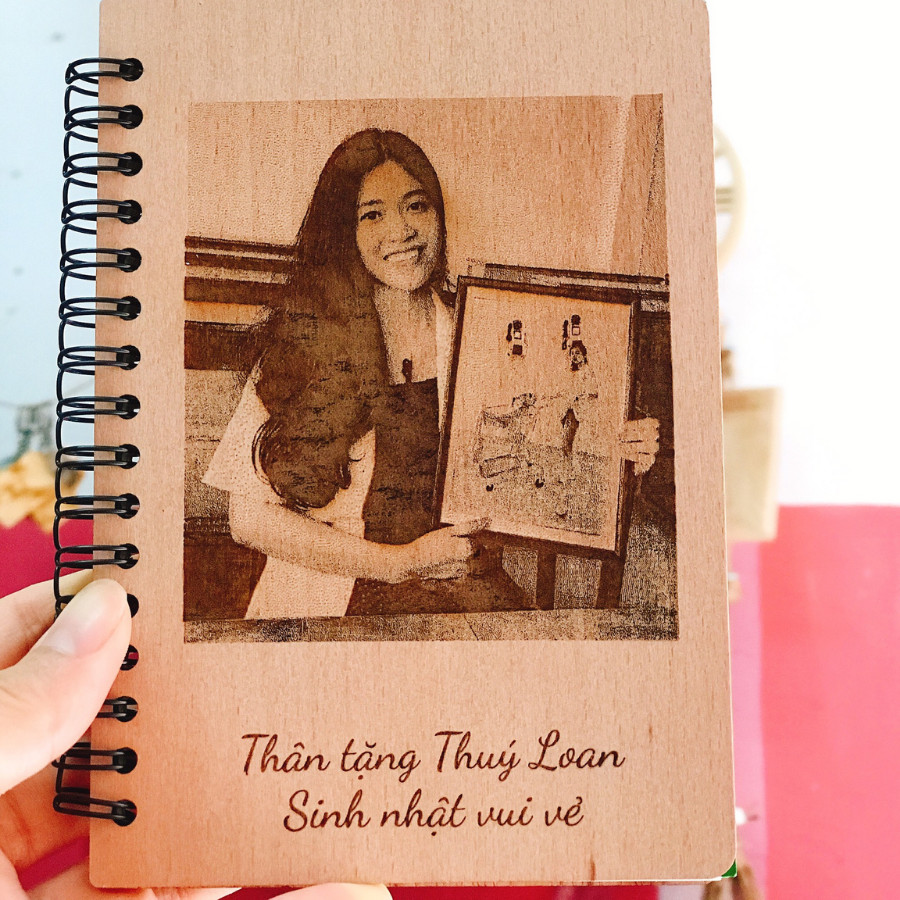 Thân tặng Thuý Loan
Sinh nhật vui vẻ